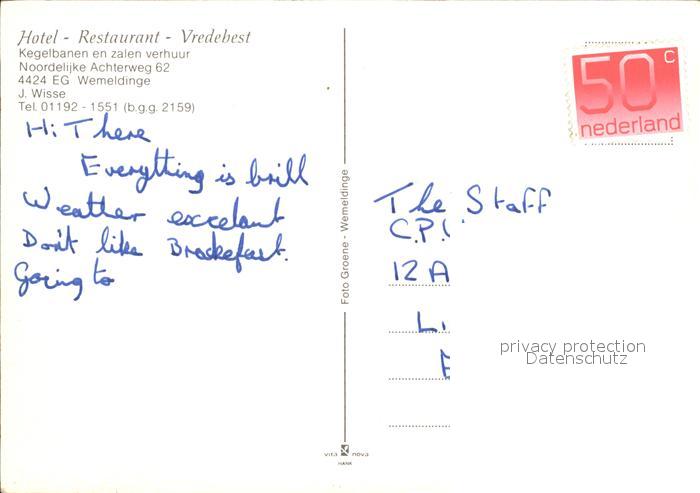 Hotel - Restaurant - Vredebest
Kegelbanen en zalen verhuur
Noordelijke Achterweg 62
4424 EG Wemeldinge
J. Wisse
Tel. 01192 - 1551 (b.g.g. 2159)
Hi There
Everything is brill
Weather excelant
Don't like Brockefast.
Going to
Foto Groene - Wemeldinge
vita nova
HANK
50 c
nederland
The Staff
C.P.
12 A
L
E
privacy protection
Datenschutz